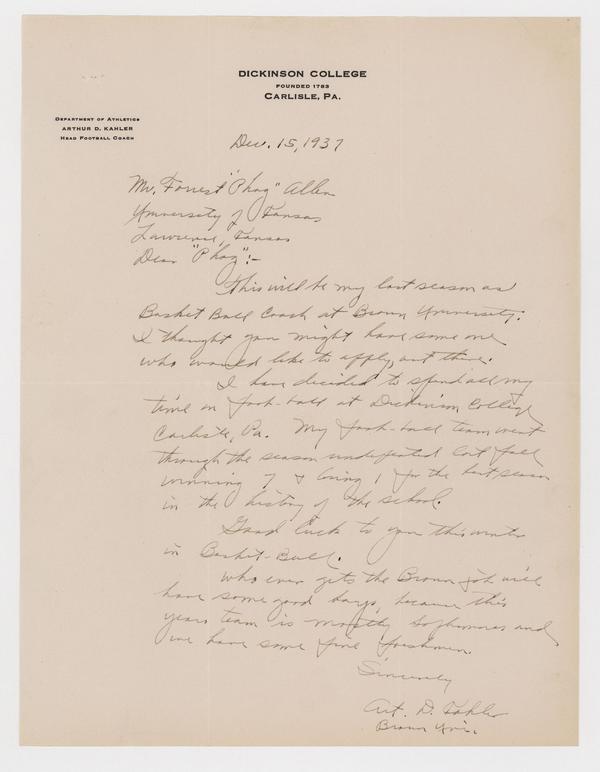 DICKINSON COLLEGE
FOUNDED 1783
CARLISLE, PA.
DEPARTMENT OF ATHLETICS
ARTHUR D. KAHLER
HEAD FOOTBALL COACH
Dec. 15, 1937
Mr. Forrest "Phog" Allen
University of Kansas
Lawrence, Kansas
Dear "Phog":-
This will be my last season as
Basket Ball Coach at Brown University.
I thought you might have some one
who would like to apply, out there.
I have decided to spend all my
time on foot-ball at Dickinson College
Carlisle, Pa. My foot-ball team went
through the season undefeated last fall
winning 7 & 1 for the best season
in the history of the school.
Good luck to you this winter
in Basket-Ball.
Who ever gets the Brown job will
have some good boys, because this
years team is mostly Sophomores and
we have some fine freshmen.
Sincerely
Art. D. Kahler
Brown Univ.